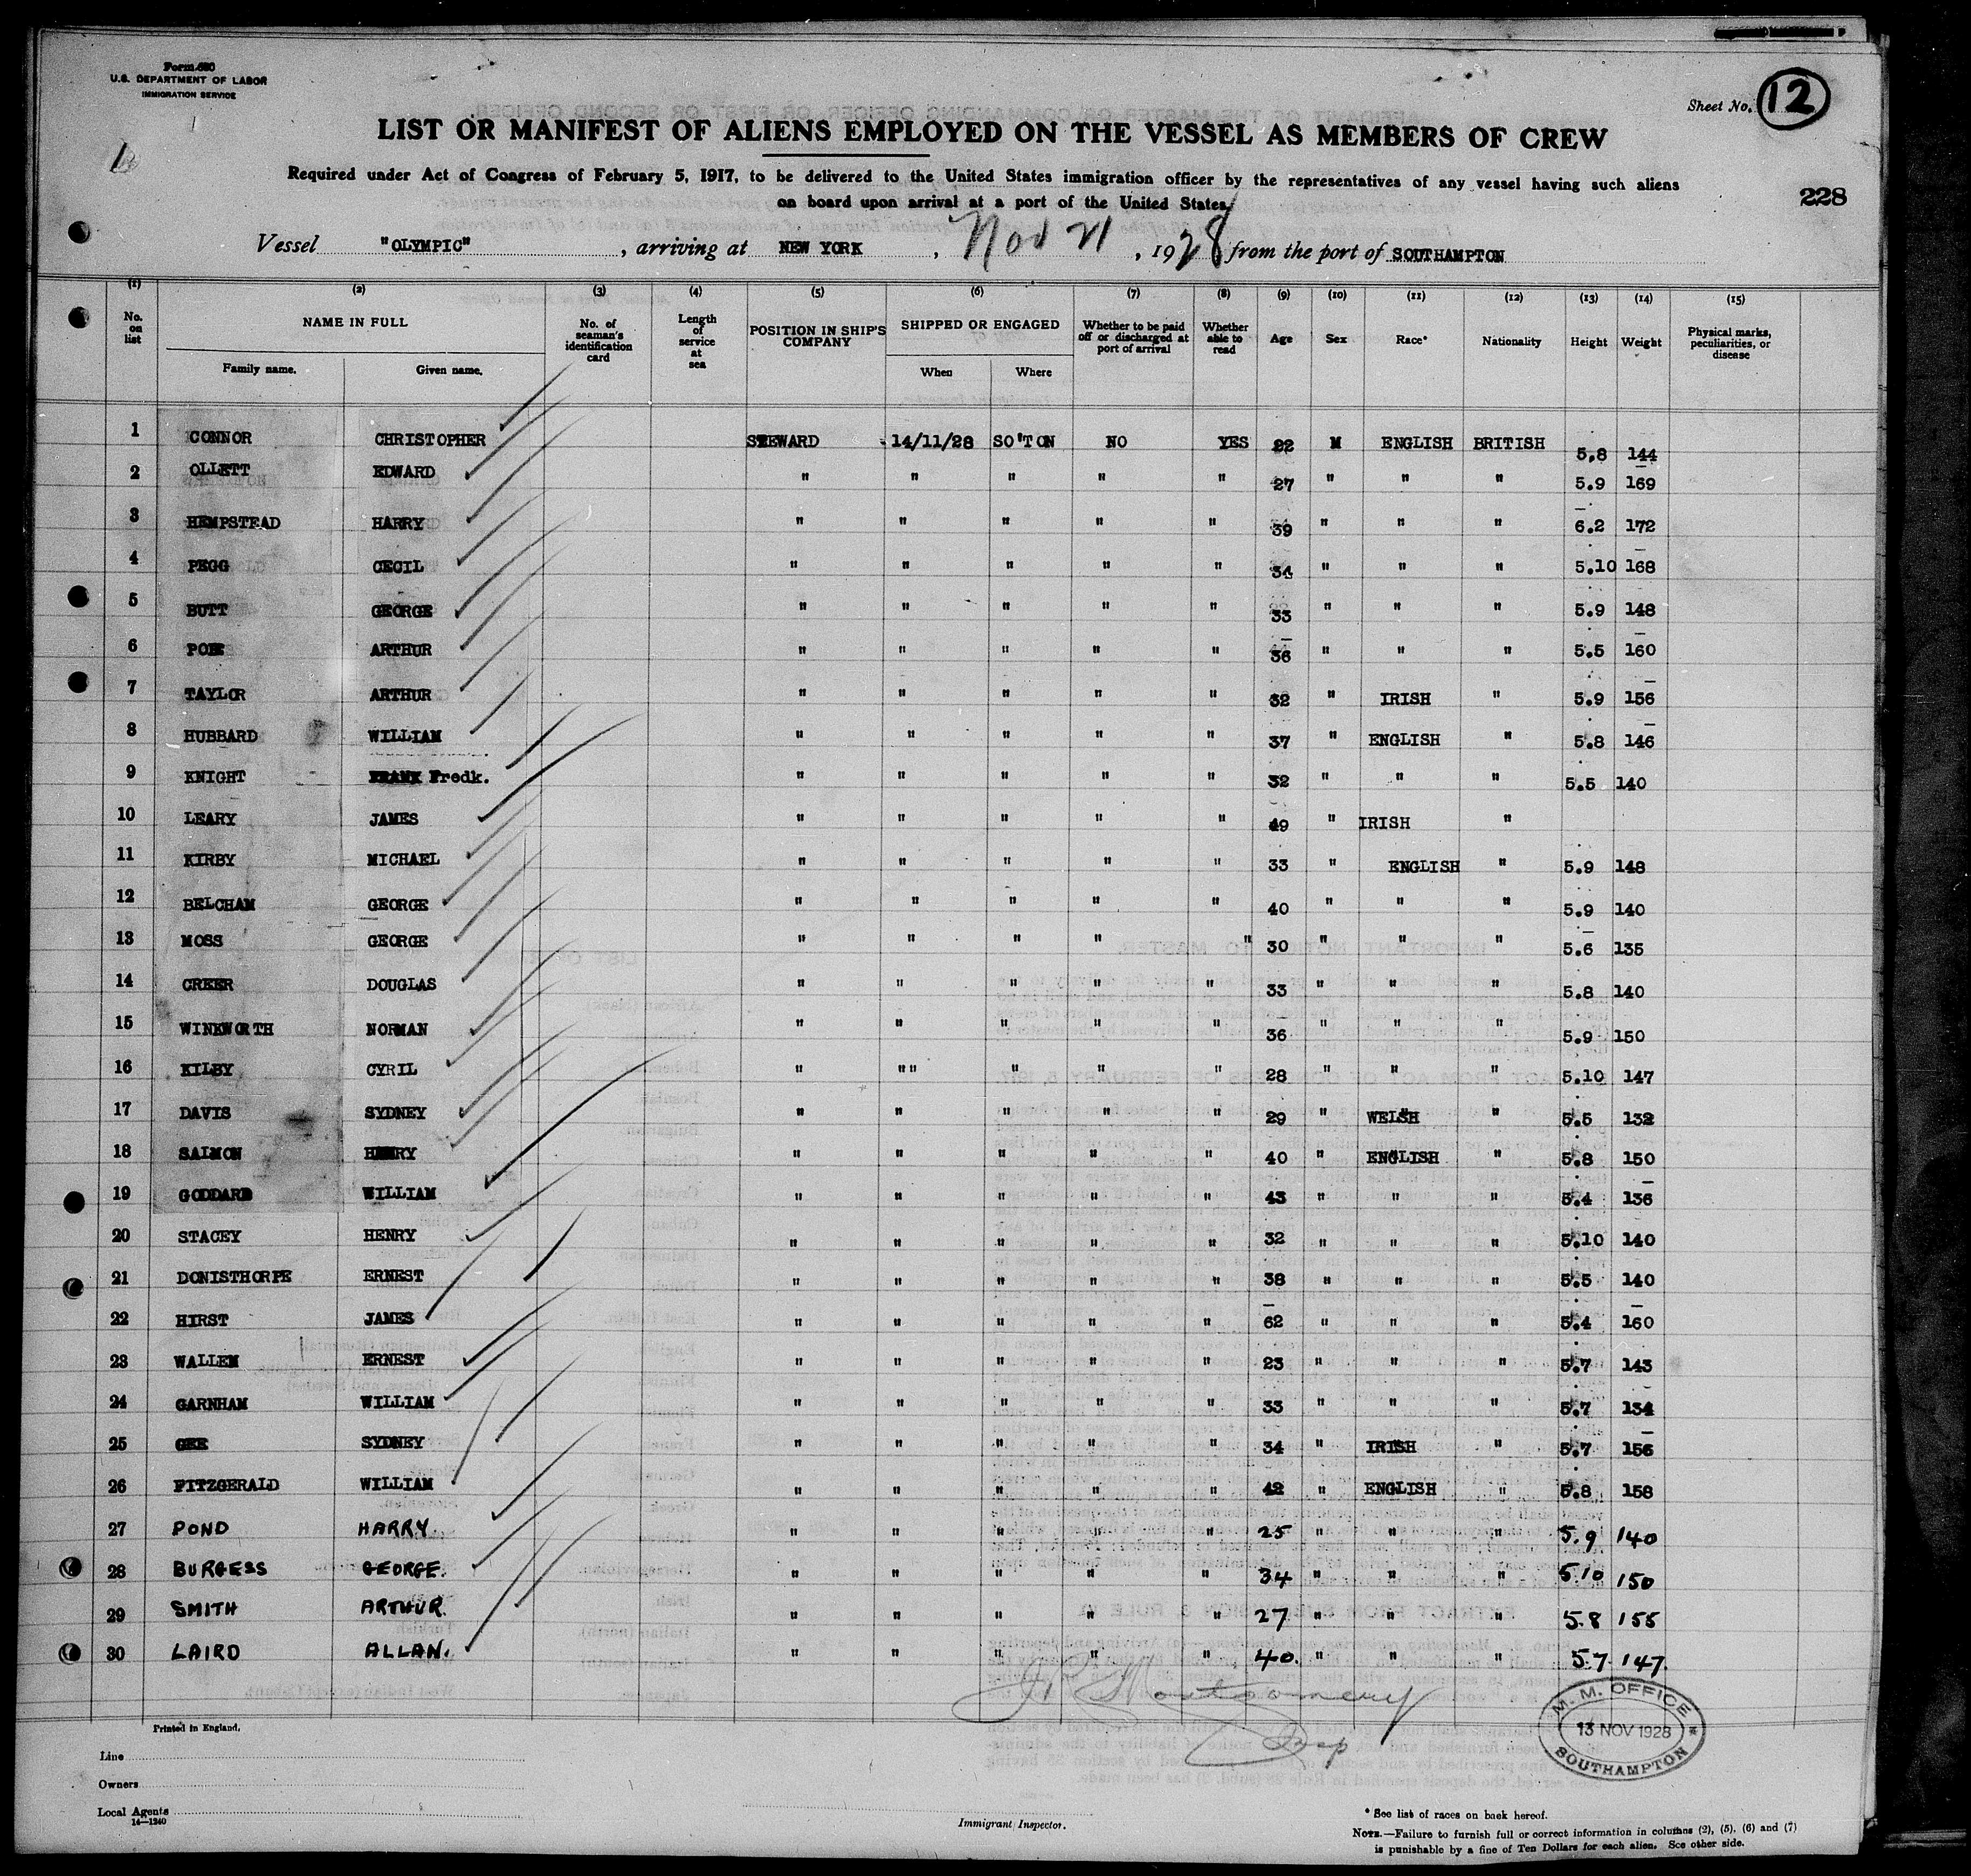 Form 680
U.S. DEPARTMENT OF LABOR
IMMIGRATION SERVICE
Sheet No. 12
LIST OR MANIFEST OF ALIENS EMPLOYED ON THE VESSEL AS MEMBERS OF CREW
Required under Act of Congress of February 5, 1917, to be delivered to the United States immigration officer by the representatives of any vessel having such aliens
on board upon arrival at a port of the United States
228
Vessel "OLYMPIC", arriving at NEW YORK, Nov 21, 1928 from the port of SOUTHAMPTON
(1) (2) (3) (4) (5) (6) (7) (8) (9) (10) (11) (12) (13) (14) (15)
No. on list NAME IN FULL Family name. Given name. No. of seaman's identification card Length of service at sea POSITION IN SHIP'S COMPANY SHIPPED OR ENGAGED When Where Whether to be paid off or discharged at port of arrival Whether able to read Age Sex Race* Nationality Height Weight Physical marks, peculiarities, or disease
1 CONNOR CHRISTOPHER STEWARD 14/11/28 SO'TON NO YES 22 M ENGLISH BRITISH 5.8 144
2 OLLETT EDWARD " " " " " 27 " " " 5.9 169
3 HEMPSTEAD HARRY " " " " " 39 " " " 6.2 172
4 PEGG CECIL " " " " " 34 " " " 5.10 168
5 BUTT GEORGE " " " " " 33 " " " 5.9 148
6 POE ARTHUR " " " " " 36 " " " 5.5 160
7 TAYLOR ARTHUR " " " " " 32 " IRISH " 5.9 156
8 HUBBARD WILLIAM " " " " " 37 " ENGLISH " 5.8 146
9 KNIGHT FRANK Fredk. " " " " " 32 " " " 5.5 140
10 LEARY JAMES " " " " " 49 " IRISH "
11 KIRBY MICHAEL " " " " " 33 " ENGLISH " 5.9 148
12 BELCHAM GEORGE " " " " " 40 " " " 5.9 140
13 MOSS GEORGE " " " " " 30 " " " 5.6 135
14 CREER DOUGLAS " " " " " 33 " " " 5.8 140
15 WINKWORTH NORMAN " " " " " 36 " " " 5.9 150
16 KILBY CYRIL " "" " " " 28 " " " 5.10 147
17 DAVIS SYDNEY " " " " " 29 " WELSH " 5.5 132
18 SALMON HENRY " " " " " 40 " ENGLISH " 5.8 150
19 GODDARD WILLIAM " " " " " 43 " " " 5.4 136
20 STACEY HENRY " " " " " 32 " " " 5.10 140
21 DONISTHORPE ERNEST " " " " " 38 " " " 5.5 140
22 HIRST JAMES " " " " " 62 " " " 5.4 160
23 WALLEN ERNEST " " " " " 23 " " " 5.7 143
24 GARNHAM WILLIAM " " " " " 33 " " " 5.7 134
25 GEE SYDNEY " " " " " 34 " IRISH " 5.7 156
26 FITZGERALD WILLIAM " " " " " 42 " ENGLISH " 5.8 158
27 POND HARRY. " " " " " 25 " " " 5.9 140
28 BURGESS GEORGE. " " " " " 34 " " " 5.10 150
29 SMITH ARTHUR. " " " " " 27 " " " 5.8 155
30 LAIRD ALLAN. " " " " " 40. " " " 5.7 147.
Montgomery
M. M. OFFICE
13 NOV 1928
SOUTHAMPTON
Printed in England.
Line
Owners
Local Agents
14—1240
Immigrant Inspector.
* See list of races on back hereof.
NOTE.—Failure to furnish full or correct information in columns (2), (5), (6) and (7)
is punishable by a fine of Ten Dollars for each alien. See other side.